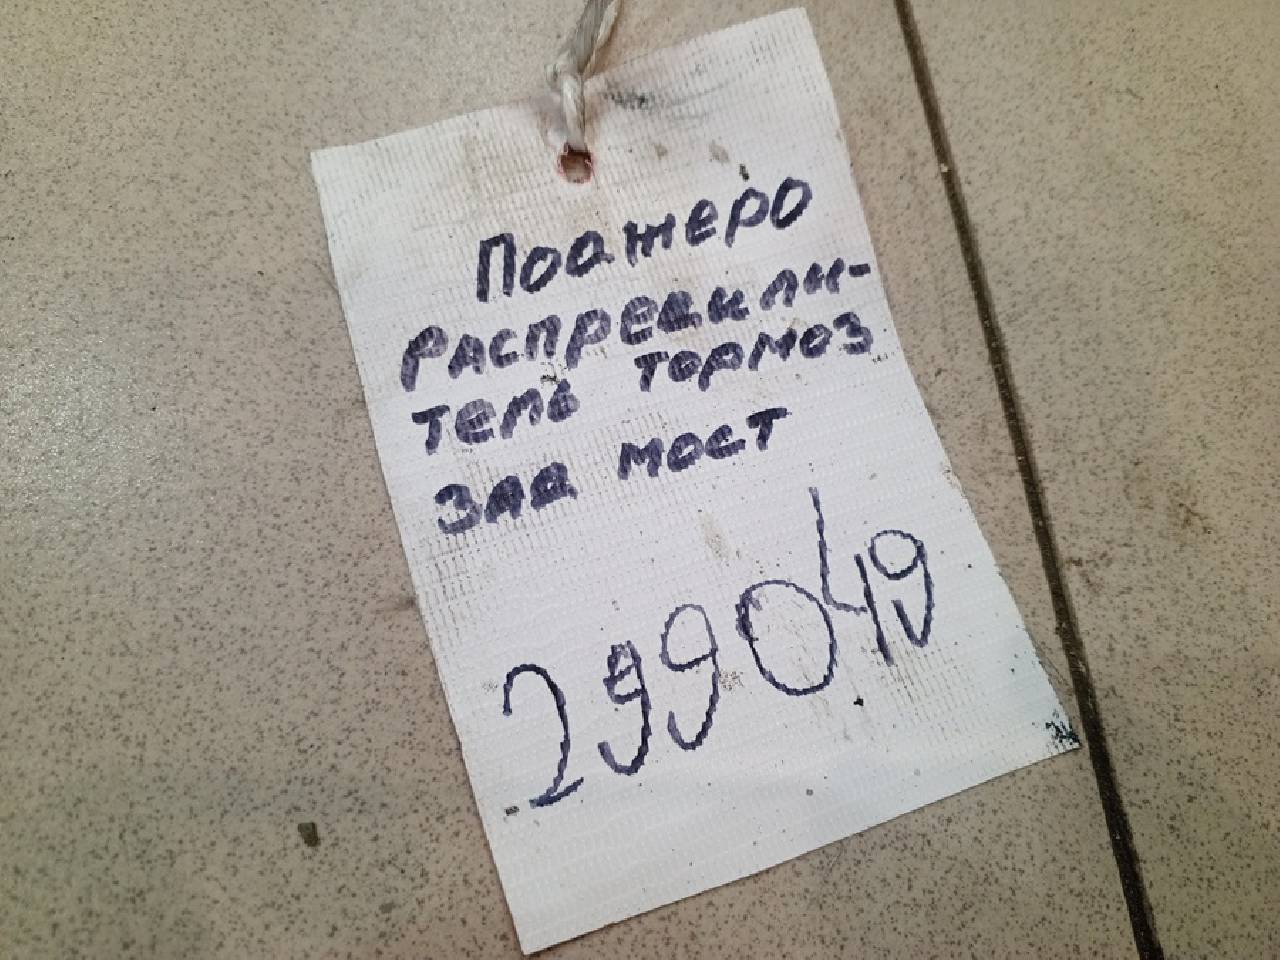 Поажеро
распредили-
тель тормоз
зад мост
299049